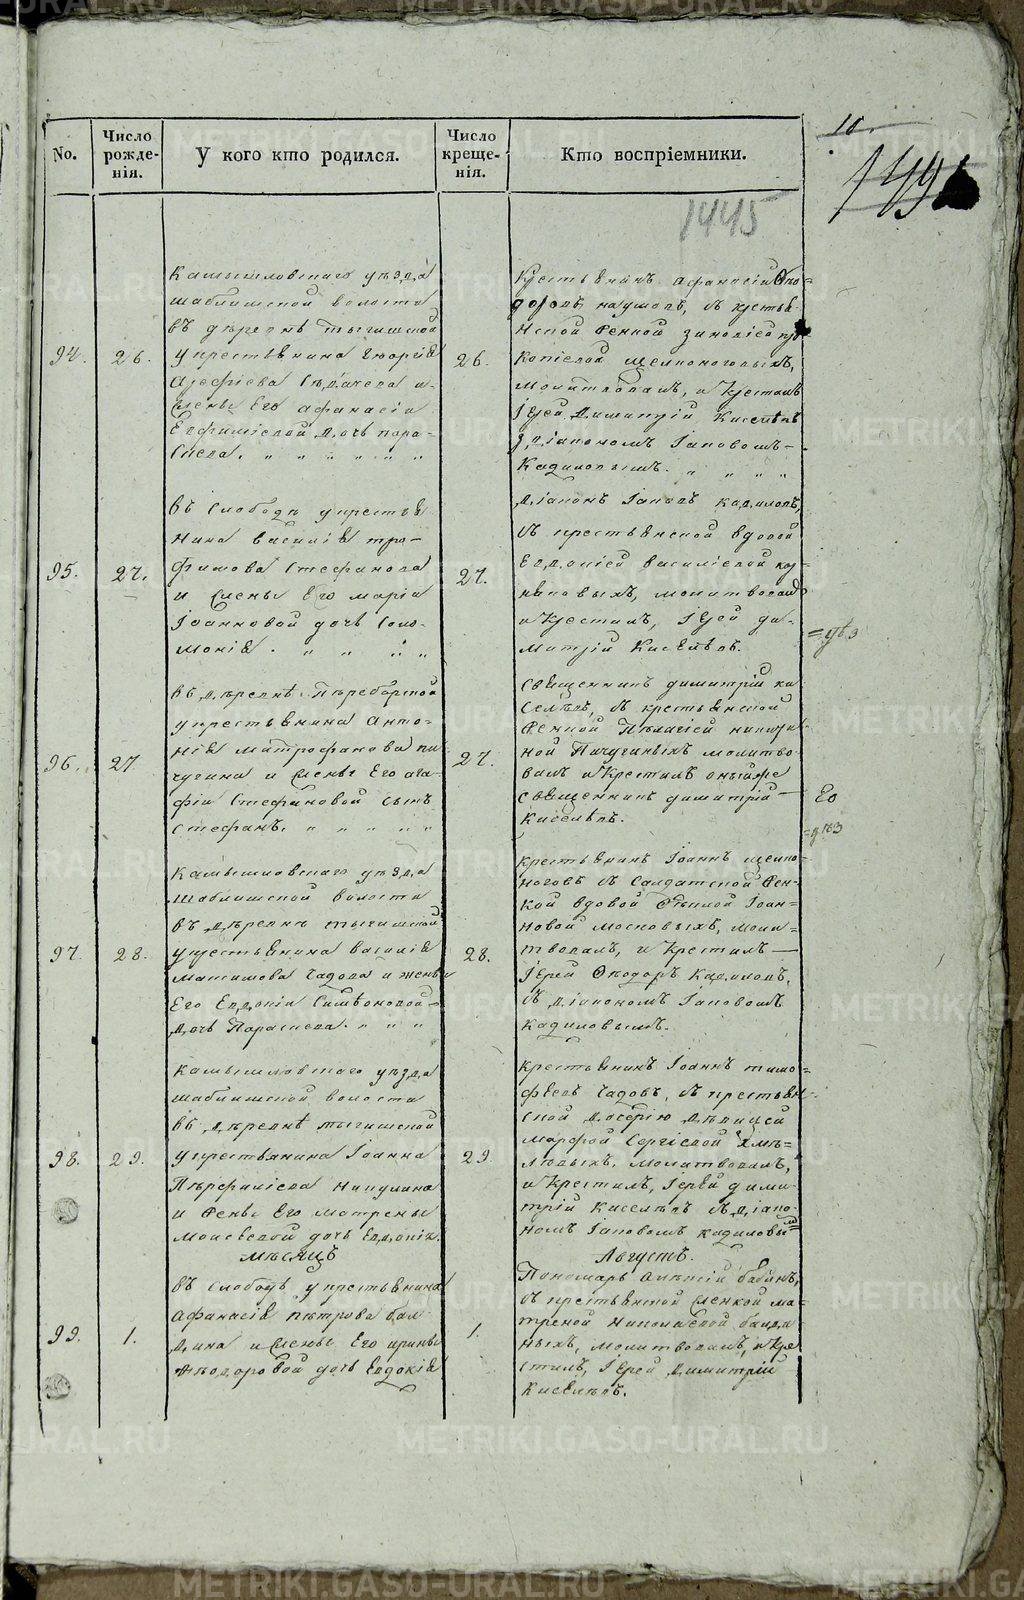 10.
1445
No.
Число рожде-нія.
У кого кто родился.
Число креще-нія.
Кто воспріемники.
94.
26.
Камышловскаго уѣзда
шаблишской волости
въ деревнѣ тыгишской
у крестьянина Георгія
и
жены Его афанасіи
Евфиміевой дочь пара-
скева. „ „ „ „ „ „
26.
Крестьянинъ афанасій Ѳео=
доровъ наумовъ, съ крестья
нской женкой зиновіей про
копіевой щелконоговыхъ,
молитвовалъ, и Крестилъ
Іерей Димитрій Киселевъ
з діакономъ Іаковомъ-
Кадиловымъ. „ „ „ „
95.
27.
въ Слободѣ у крестья
нина василія тро-
фимова Стефанова
и жены Его маріи
Іоанновой дочь Соло-
монія. „ „ „ „
27.
Діаконъ Іаковъ кадиловъ,
съ крестьянской вдовой
Евдокіей василіевой кор
няковыхъ, молитвовалъ
и Крестилъ, Іерей ди-
митрій Киселевъ.
96.
27
въ деревнѣ Перебор­ской
у крестьянина анто-
нія митрофанова пи
чугина и жены Его ага-
фіи Стефановой сынъ
стефанъ. „ „ „ „ „
27.
Священникъ димитрій ки
Селевъ, съ крестьянской
женкой Пелагіей
ной Пичугиныхъ молитво-
валъ и Крестилъ оныйже
священникъ димитрій -
Киселевъ.
97.
28.
Камышловскаго уѣзда
шаблишской волости
въ деревнѣ тыгишской
у крестьянина василія
максимова Чадова и жены
Его Евдокіи Симеоновой-
дочь Параскева. „ „ „
28.
крестьянинъ Іоаннъ щелко=
ноговъ съ Салдатской жен=
кой вдовой Ѳеклой Іоан=
новой московыхъ, моли-
твовалъ, и Крестилъ —
Іерей Ѳеодоръ Кадиловъ,
съ діакономъ Іаковомъ
Кадиловымъ.
98.
29.
Камышловскаго уѣзда
шаблишской волости
въ деревнѣ тыгишской
у крестьянина Іоанна
Перфиліева Никулина
и жены Его матрены
моисеевой дочь Евдокія.
29.
крестьянинъ Іоаннъ тимо=
феевъ Чадовъ, съ крестьян-
ской дочерію девицей
марфой Сергіевой Хмѣ-
левыхъ. молитвовалъ,
и Крестилъ, Іерей дими-
трій Киселевъ съ діако-
номъ Іаковомъ кадиловымъ
мѣсяцъ
Августъ.
99.
1.
въ слободѣ у крестьянина
афанасія петрова бал-
дина и жены Его ирины
Ѳеодоровой дочь Евдокія
1.
Пономарь Алексій бабинъ,
съ крестьянской женкой ма-
треной николаевой балди
ныхъ, молитвовалъ, и Кре
стилъ, Іерей Димитрій
Киселевъ.
METRIKI.GASO-URAL.RU